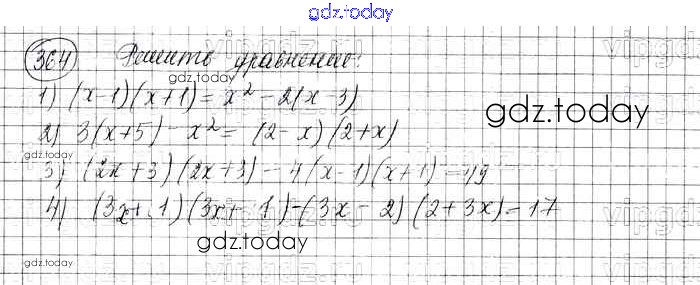 gdz.today
364 Решить уравнение:
gdz.today
1) (x-1)(x+1) = x² - 2(x-3)
gdz.today
2) 3(x+5) - x² = (2-x)(2+x)
gdz.today
3) (2x+3)(2x+3) - 4(x-1)(x+1) = 49
4) (3x+1)(3x+1) - (3x-2)(2+3x) = 17
gdz.today
gdz.today